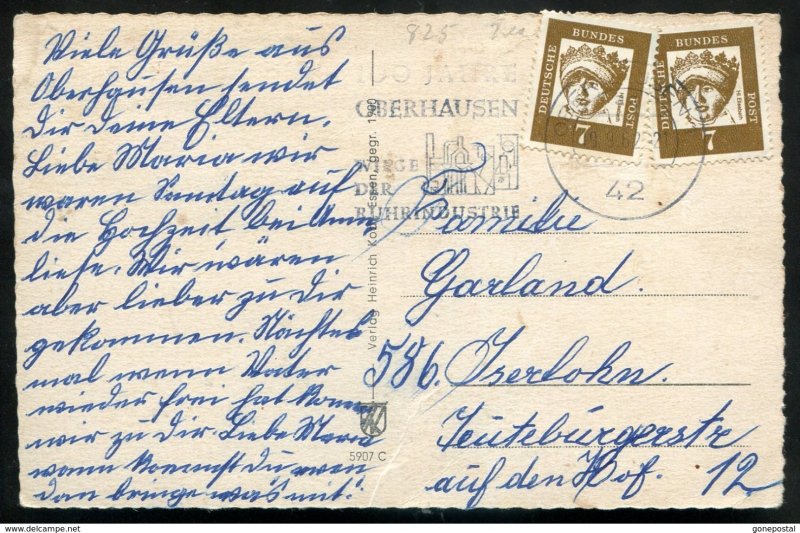 Viele Grüße aus
Oberhausen sendet
Dir deine Eltern.
Liebe Maria wir
waren Sontag auf
die Hochzeit bei Anne
liese. Wir wären
aber lieber zu Dir
gekommen. Nächtes
mal wenn Vater
wieder frei hat komen
wir zu Dir. Liebe Maria
wann kommst du
Dan bringe was mit!
825
100 JAHRE
OBERHAUSEN
WIEGE
DER
RUHRINDUSTRIE
42
DEUTSCHE BUNDES POST
7
DEUTSCHE BUNDES POST
7
Familie
Garland.
586. Iserlohn.
Teuteburgerstr
auf den Hof. 12
Verlag Heinrich Essen, gegr. 1900
5907 C
www.hipstamp.com
gonepostal